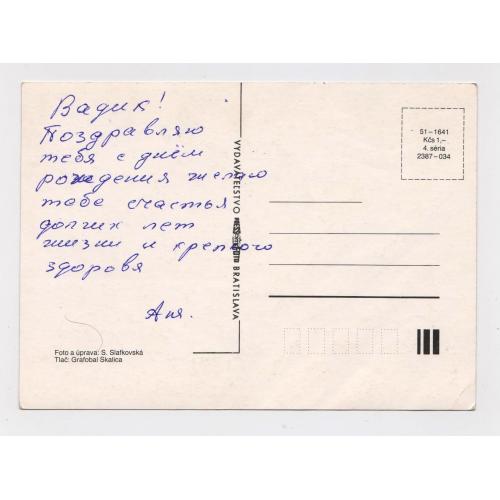 Вадик!
Поздравляю
тебя с днём
рождения желаю
тебе счастья
долгих лет
жизни и крепкого
здоровя
Аня.
Foto a úprava: S. Slafkovská
Tlač: Grafobal Skalica
VYDAVATEĽSTVO BRATISLAVA
51–1641
Kčs 1,–
4. séria
2387–034